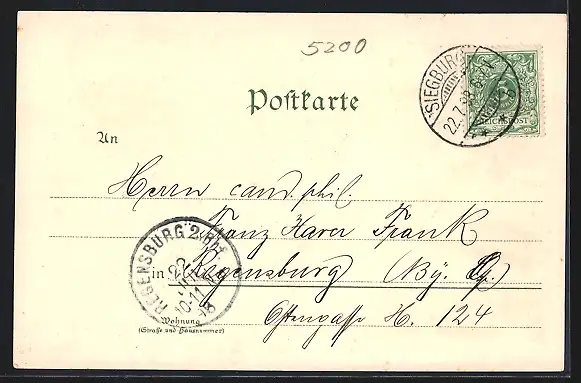 5200
Postkarte
SIEGBURG
22.7.98
REICHSPOST
An
Herrn cand. phil.
Franz Xaver Frank
REGENSBURG 2. Bhf
in Regensburg (By.
22
JUL
10-11
98
Wohnung
(Straße und Hausnummer)
Ostengasse H. 124